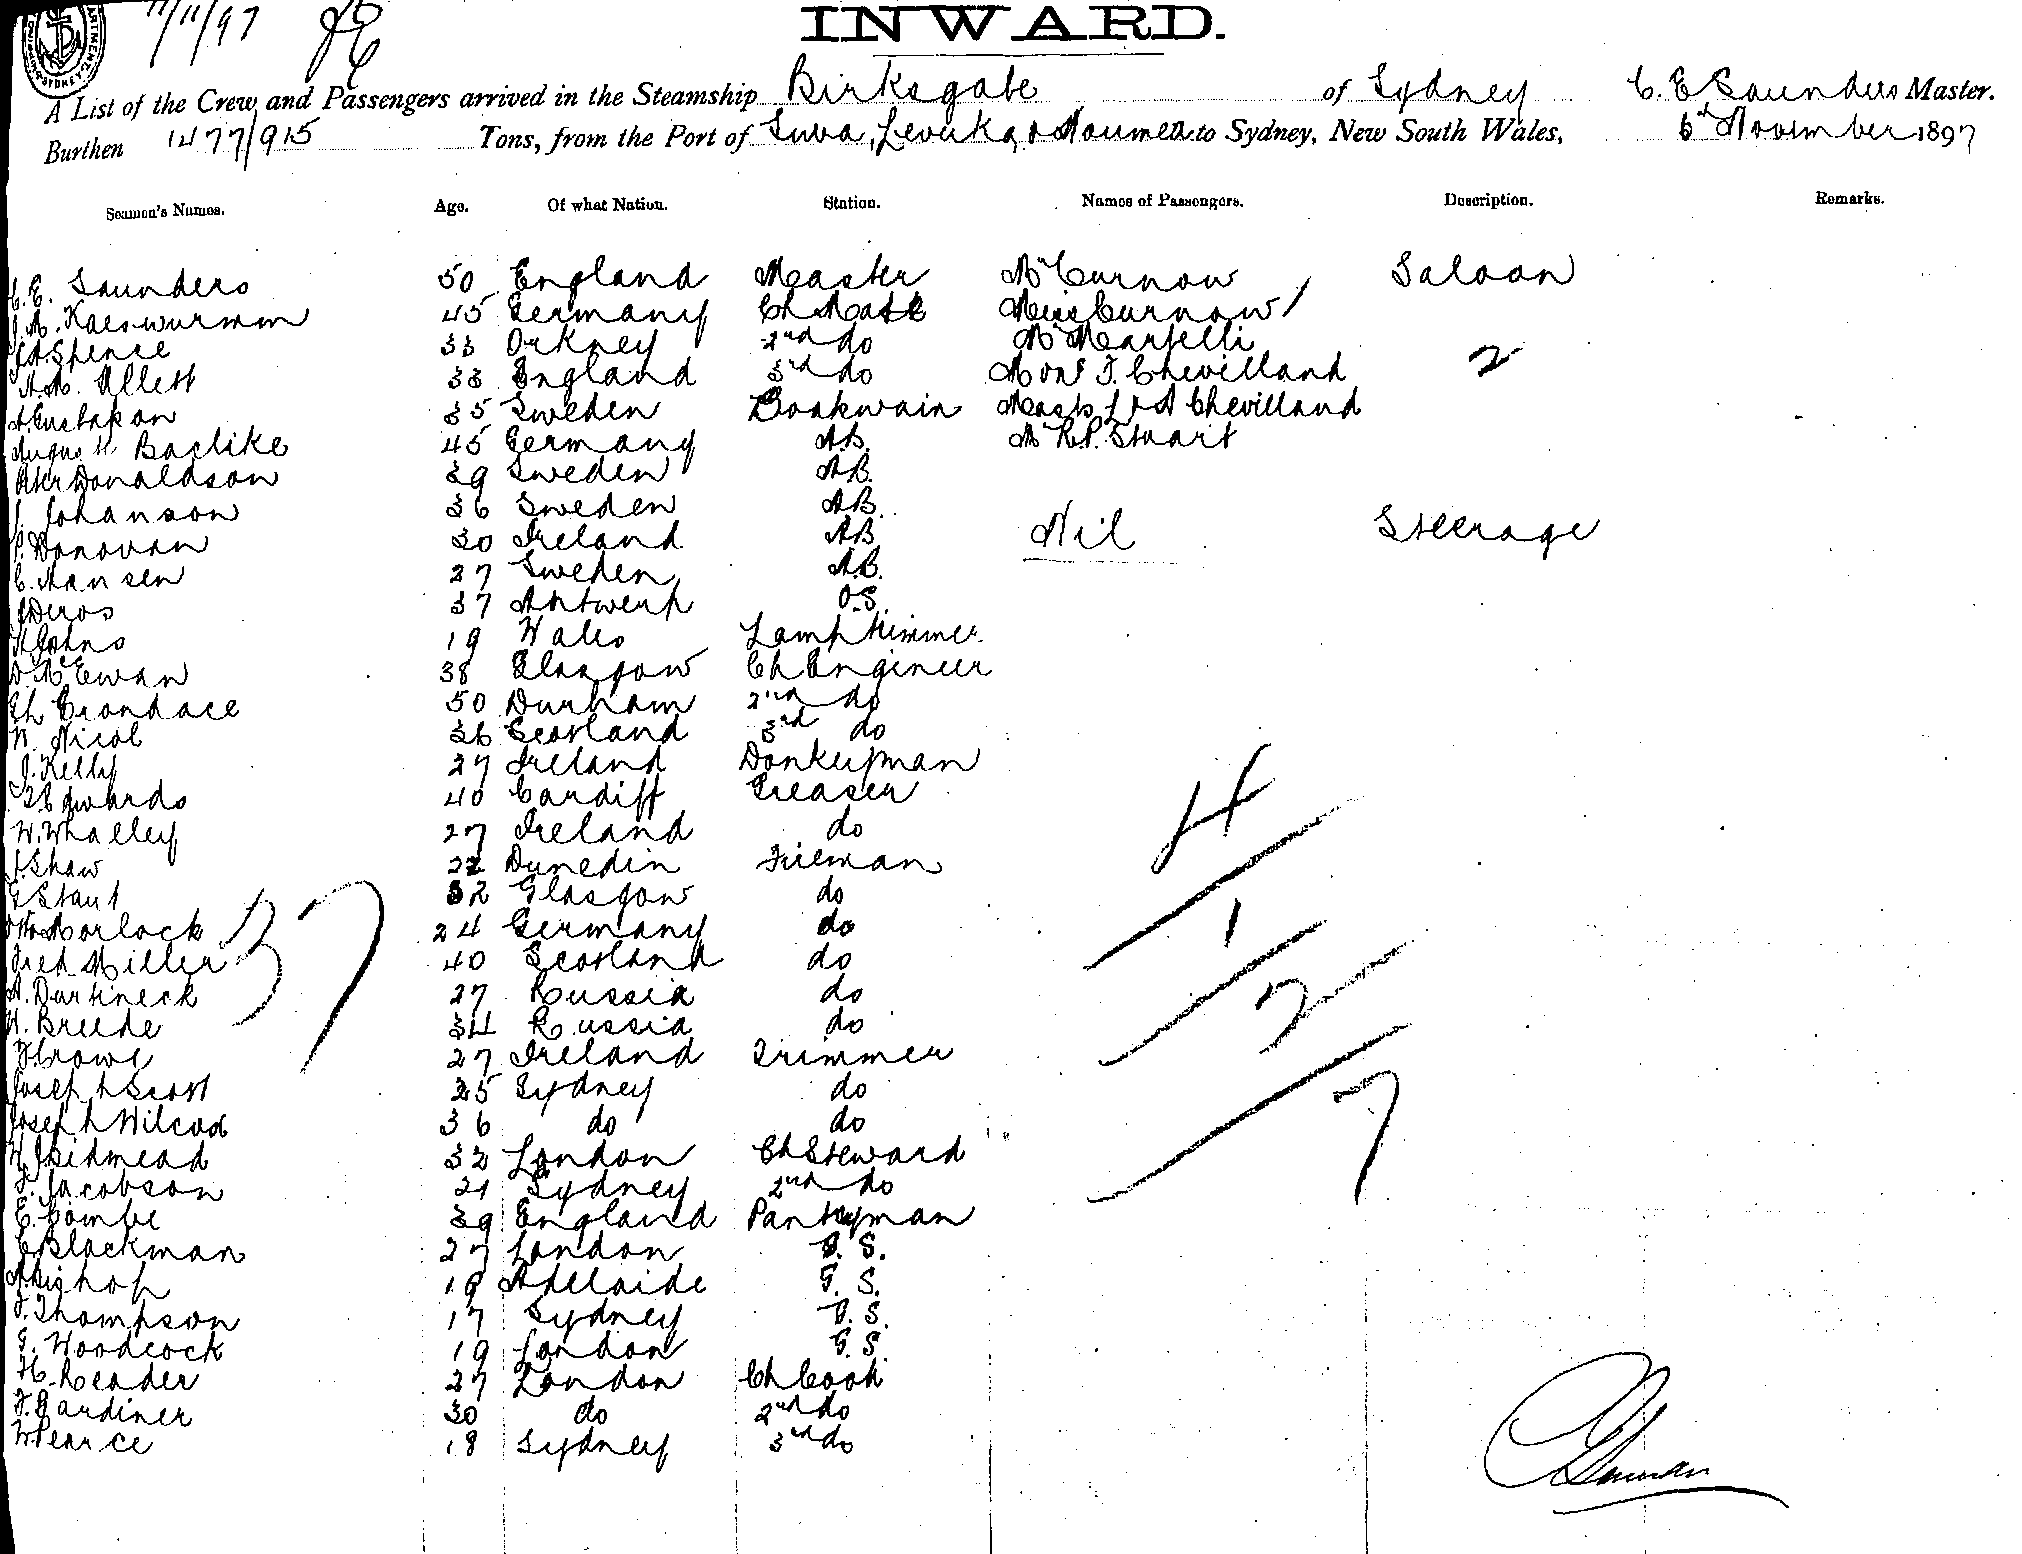 11/11/97
INWARD.
A List of the Crew and Passengers arrived in the Steamship Birksgate of Sydney C. E Saunders Master.
Burthen 1477/915 Tons, from the Port of Suva, Levuka, & Noumea to Sydney, New South Wales, 6th November 1897
Seamen's Names. Age. Of what Nation. Station. Names of Passengers. Description. Remarks.
C. E. Saunders 50 England Master Mr Curnow / Saloon
Kaeswurmm 45 Germany Ch Mate Miss Curnow /
Spence 33 Orkney 2nd do Mr Martelli
Ullett 33 England 3rd do Mons J. Chevilland 2
A. Gustafson 35 Sweden Boatswain Masts L & A Chevilland
August Baclike 45 Germany A.B. Mr R.P. Stuart
Peter Donaldson 39 Sweden A.B.
J. Johanson 36 Sweden A.B.
P. Donovan 30 Ireland A.B. Nil Steerage
C. Hansen 27 Sweden A.B.
Deros 37 Antwerp O.S.
Johns 19 Wales Lamp trimmer
D McEwan 38 Glasgow Ch Engineer
Crondace 50 Durham 2nd do
Nicol 36 Scotland 3rd do
J. Kelly 27 Ireland Donkeyman
Edwards 40 Cardiff Greaser
W. Whalley 27 Ireland do
J. Shaw 22 Dunedin Fireman
G Staut 32 Glasgow do
Otto Morlock 24 Germany do
Fred Miller 40 Scotland do
A. Durtineck 27 Russia do
H. Breede 34 Russia do
Crowe 27 Ireland Trimmer
Joseph Scott 25 Sydney do
Joseph Wilcox 36 do do
W. Skidmead 32 London Ch Steward
F. Jacobson 21 Sydney 2nd do
E. Combe 39 England Pantryman
C Blackman 27 London G. S.
A Bishop 19 Adelaide G. S.
F. Thompson 17 Sydney G. S.
G. Woodcock 19 London G. S.
H. Reader 27 London Ch Cook
F. Gardiner 30 do 2nd do
W Pearce 18 Sydney 3rd do
37
4
1
2
7